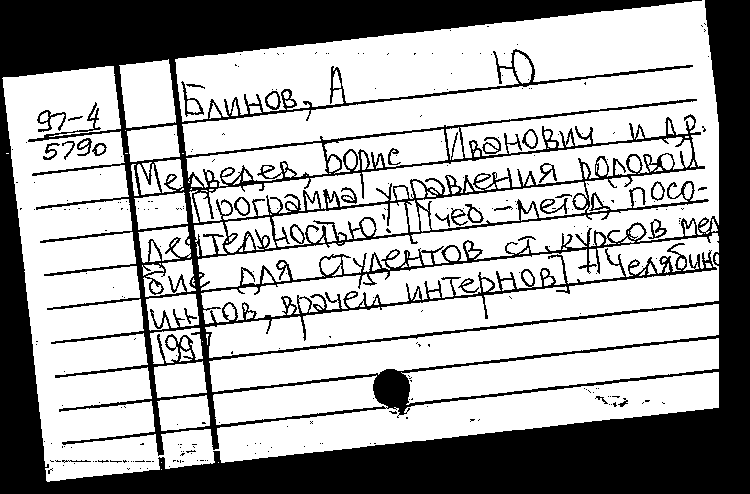 Блинов, А Ю
97-4
5790
Медведев, Борис Иванович и др.
Программа управления родовой
деятельностью: [Учеб.-метод. посо-
бие для студентов ст. курсов мед
ин-тов, врачей интернов].-Челябинс
1997